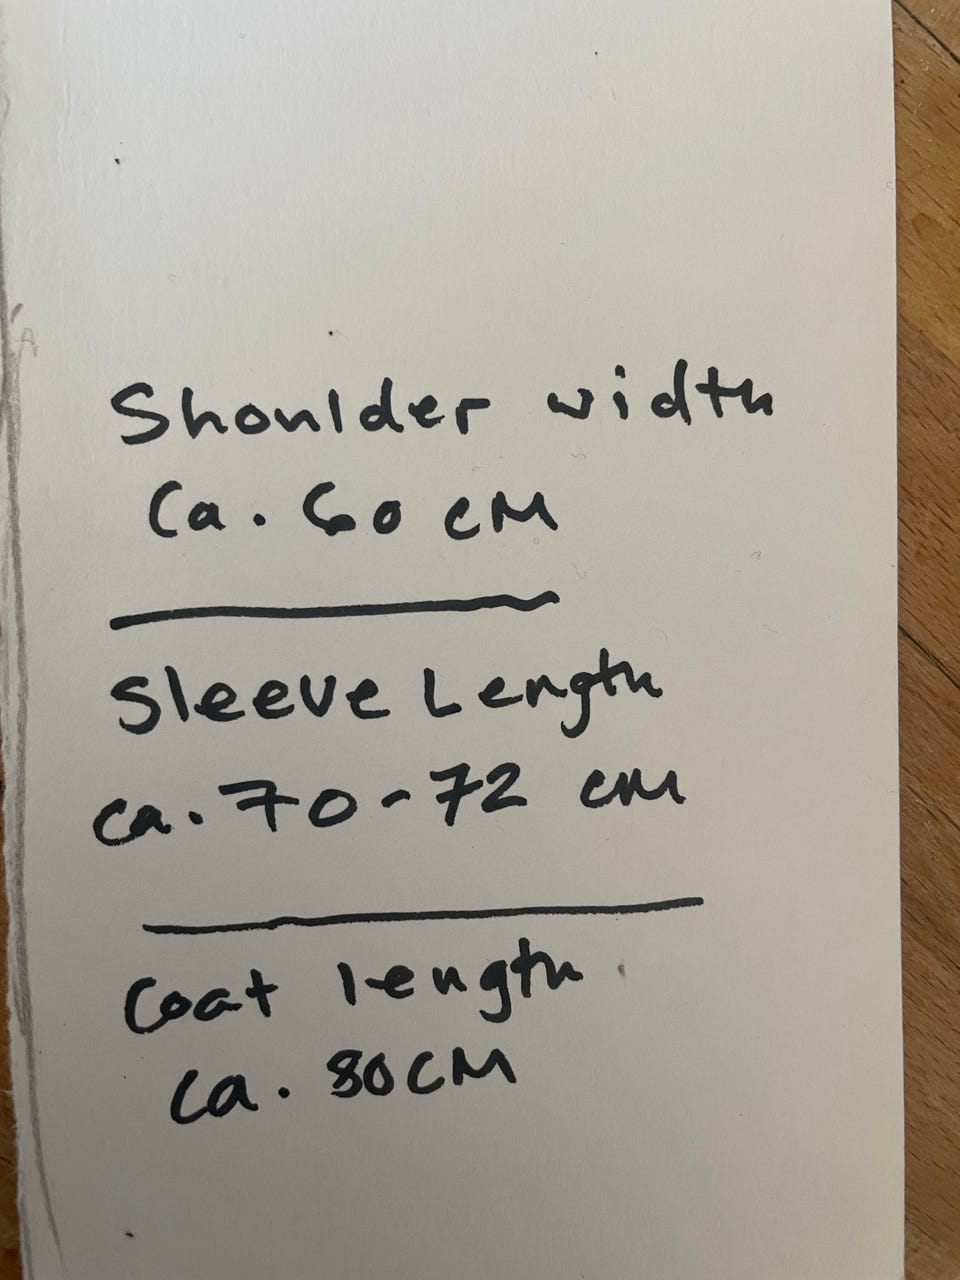 Shoulder width
Ca. 60 cM
Sleeve Length
ca. 70-72 cm
Coat length
ca. 80CM